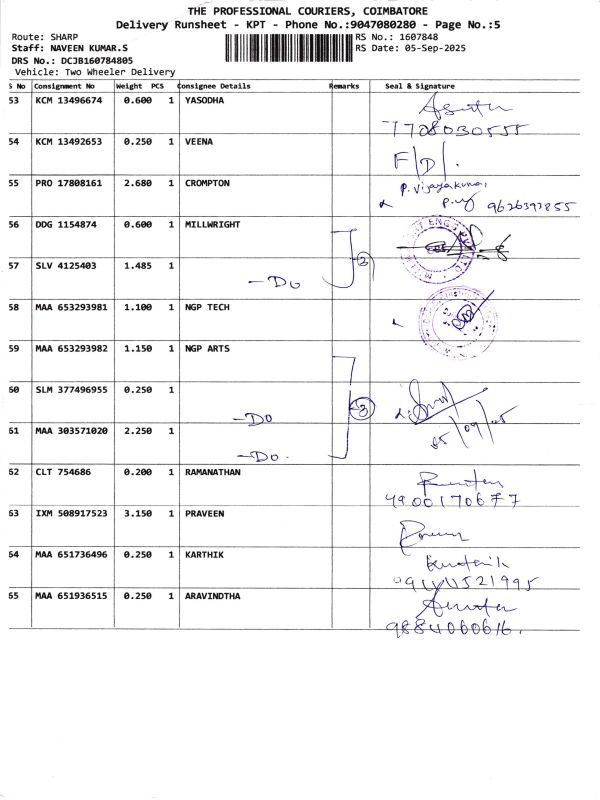 THE PROFESSIONAL COURIERS, COIMBATORE
Delivery Runsheet - KPT - Phone No.:9047080280 - Page No.:5
Route: SHARP
RS No.: 1607848
Staff: NAVEEN KUMAR.S
RS Date: 05-Sep-2025
DRS No.: DCJB160784805
Vehicle: Two Wheeler Delivery
S No Consignment No Weight PCS Consignee Details Remarks Seal & Signature
53 KCM 13496674 0.600 1 YASODHA
7708030555
54 KCM 13492653 0.250 1 VEENA
F/D/.
55 PRO 17808161 2.680 1 CROMPTON
P. Vijayakumar
9626393855
56 DDG 1154874 0.600 1 MILLWRIGHT
57 SLV 4125403 1.485 1
-Do
2
58 MAA 653293981 1.100 1 NGP TECH
59 MAA 653293982 1.150 1 NGP ARTS
60 SLM 377496955 0.250 1
-Do
3
05/09/25
61 MAA 303571020 2.250 1
-Do.
62 CLT 754686 0.200 1 RAMANATHAN
4900170677
63 IXM 508917523 3.150 1 PRAVEEN
64 MAA 651736496 0.250 1 KARTHIK
Karthik
65 MAA 651936515 0.250 1 ARAVINDTHA
9884060616.